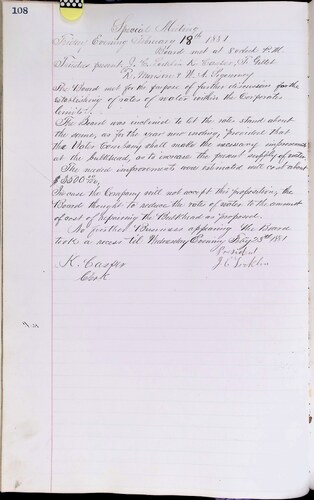 108
Special Meeting
Friday Evening February 18th 1881
Board met at 8 oclock P.M.
Trustees present, J. C.
K.
The Board met for the purpose of further discussion for the
establishing of rates of water within the Corporate
limits.
The Board was inclined to let the rates stand about
the same, as for the year now ending, provided that
the Water Company shall make the necessary improvements
at the bulkhead, as to increase the present supply of water
The said improvements were estimated will cost about
$
In case the Company will not accept this proposition, the
Board thought to reduce the rates of water to the amount
of cost of repairing the Bulkhead as proposed.
No further Business appearing the Board
took a recess till Wednesday Evening Feby 23rd 1881
President
K. Casper
Clerk
J. C.